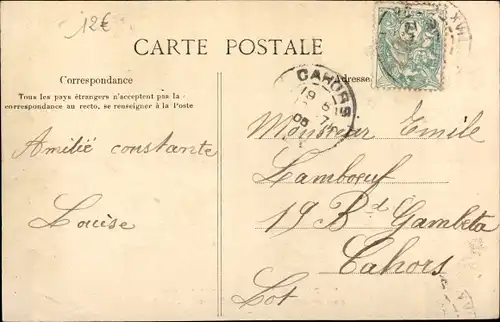 12€
CARTE POSTALE
Correspondance
Tous les pays étrangers n'acceptent pas la
correspondance au recto, se renseigner à la Poste
Adresse
CAHORS
19
05
Amitié constante
Louise
Monsieur Emile
Lamboeuf
19 Bd Gambeta
Cahors
Lot